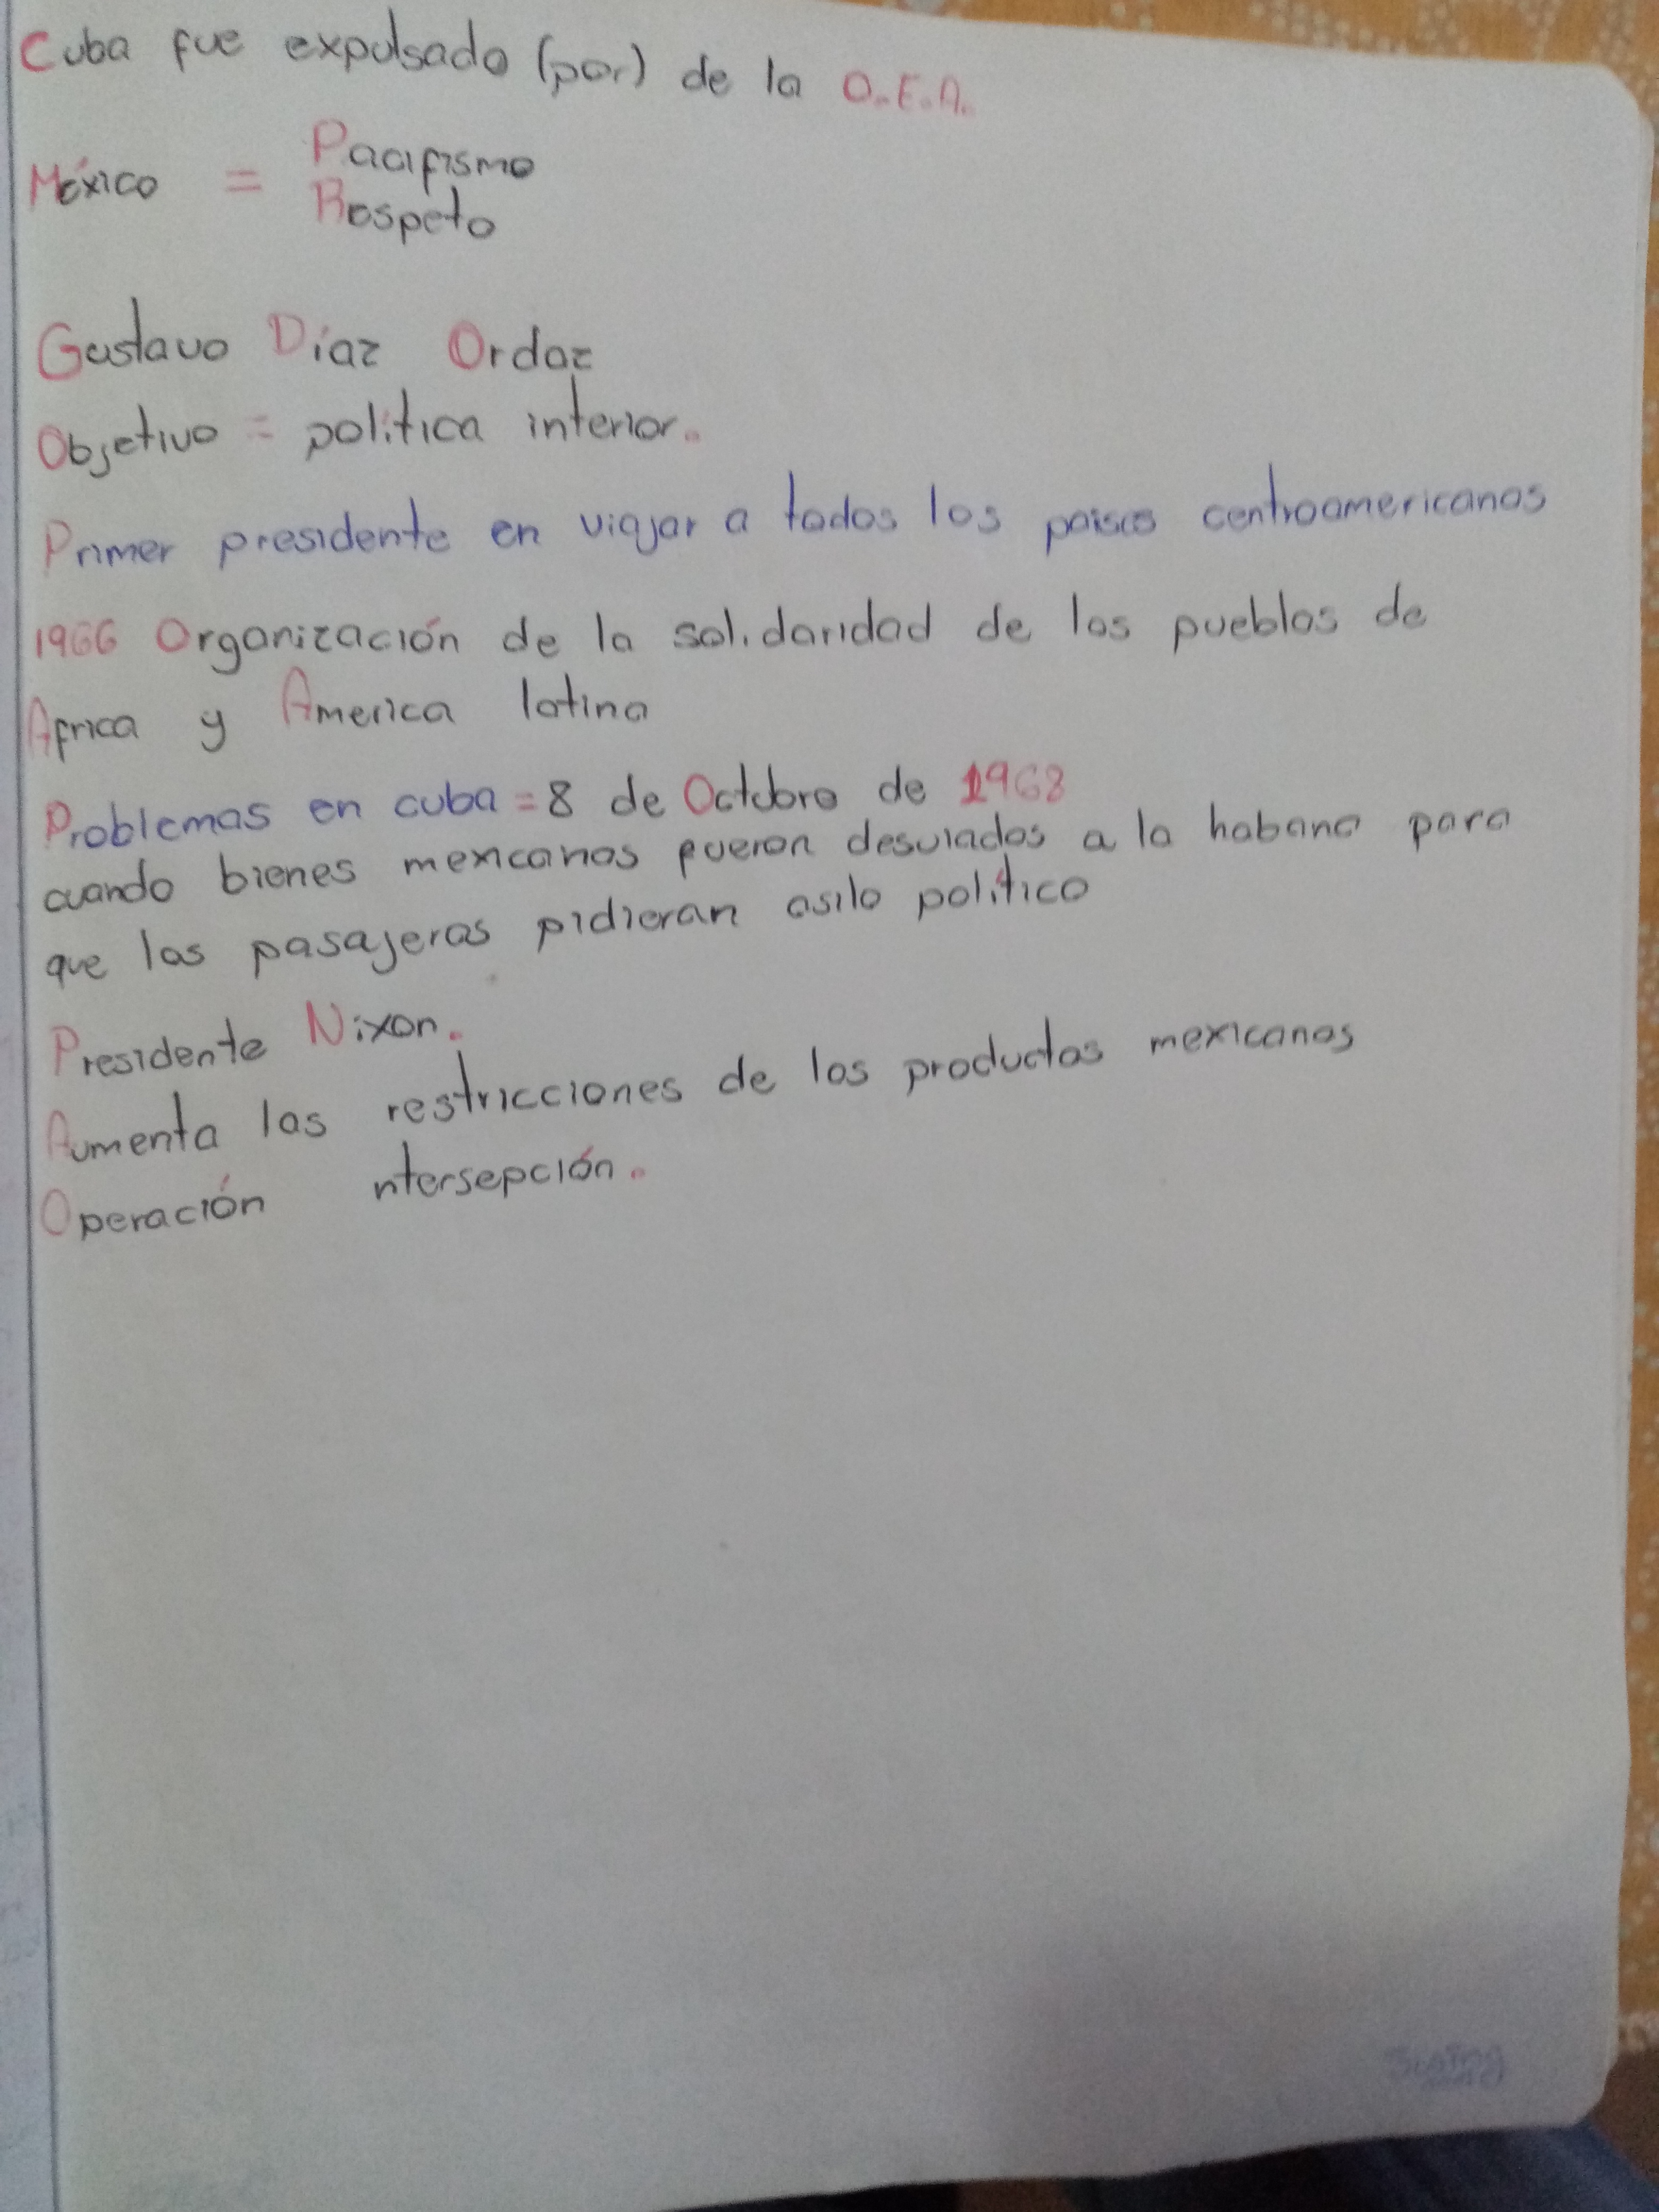 Cuba fue expulsado (por) de la O.E.A.
México = Pacifismo
Respeto
Gustavo Díaz Ordaz
Objetivo = política interior.
Primer presidente en viajar a todos los paises centroamericanos
1966 Organización de la solidaridad de los pueblos de
Africa y America latina
Problemas en cuba = 8 de Octubre de 1968
cuando bienes mexicanos fueron desviados a la habana para
que los pasajeros pidieran asilo político
Presidente Nixon.
Aumenta las restricciones de los productos mexicanos
Operación ntersepción.